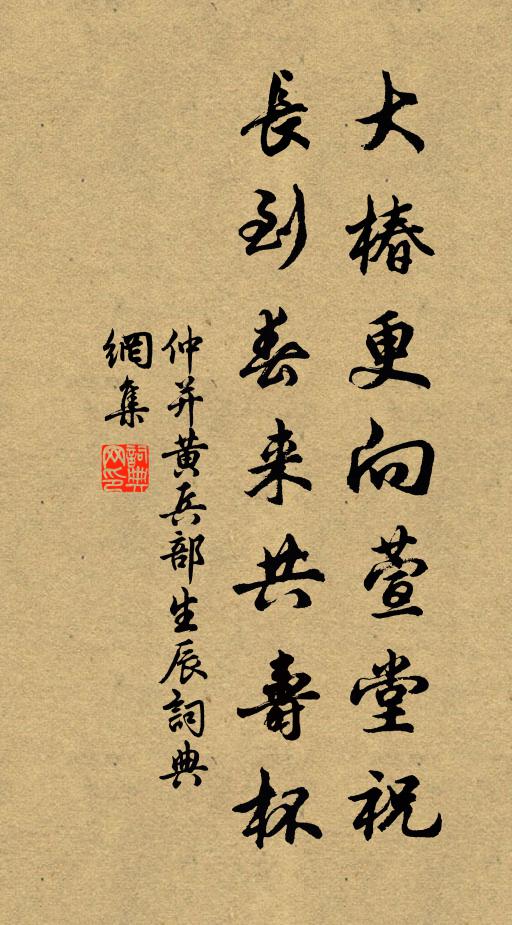 大椿更向萱堂祝
長到春来共壽杯
仲并黄兵部生辰詞典
網集
詞典
网印